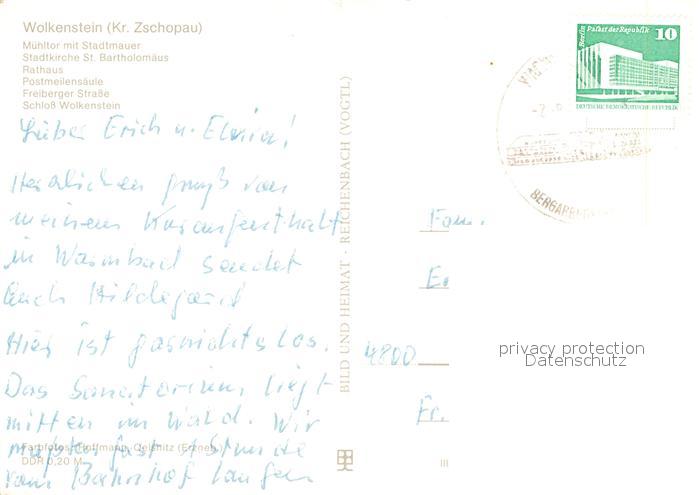 Wolkenstein (Kr. Zschopau)
Mühltor mit Stadtmauer
Stadtkirche St. Bartholomäus
Rathaus
Postmeilensäule
Freiberger Straße
Schloß Wolkenstein
Lieber Erich u. Elvira!
Herzlichen gruß von
meinem Kuraufenthalt
in Warmbad sendet
Euch Hildegard
Hier ist garnichts los.
Das Sanatorium liegt
mitten im Wald. Wir
mußten fast 1 Stunde
vom Bahnhof laufen
Farbfotos: Hoffmann, Oelsnitz (Erzgeb.)
DDR 0,20 M
BILD UND HEIMAT · REICHENBACH (VOGTL)
III
Berlin Palast der Republik
10
DEUTSCHE DEMOKRATISCHE REPUBLIK
Fam.
4800
Fr.
privacy protection
Datenschutz